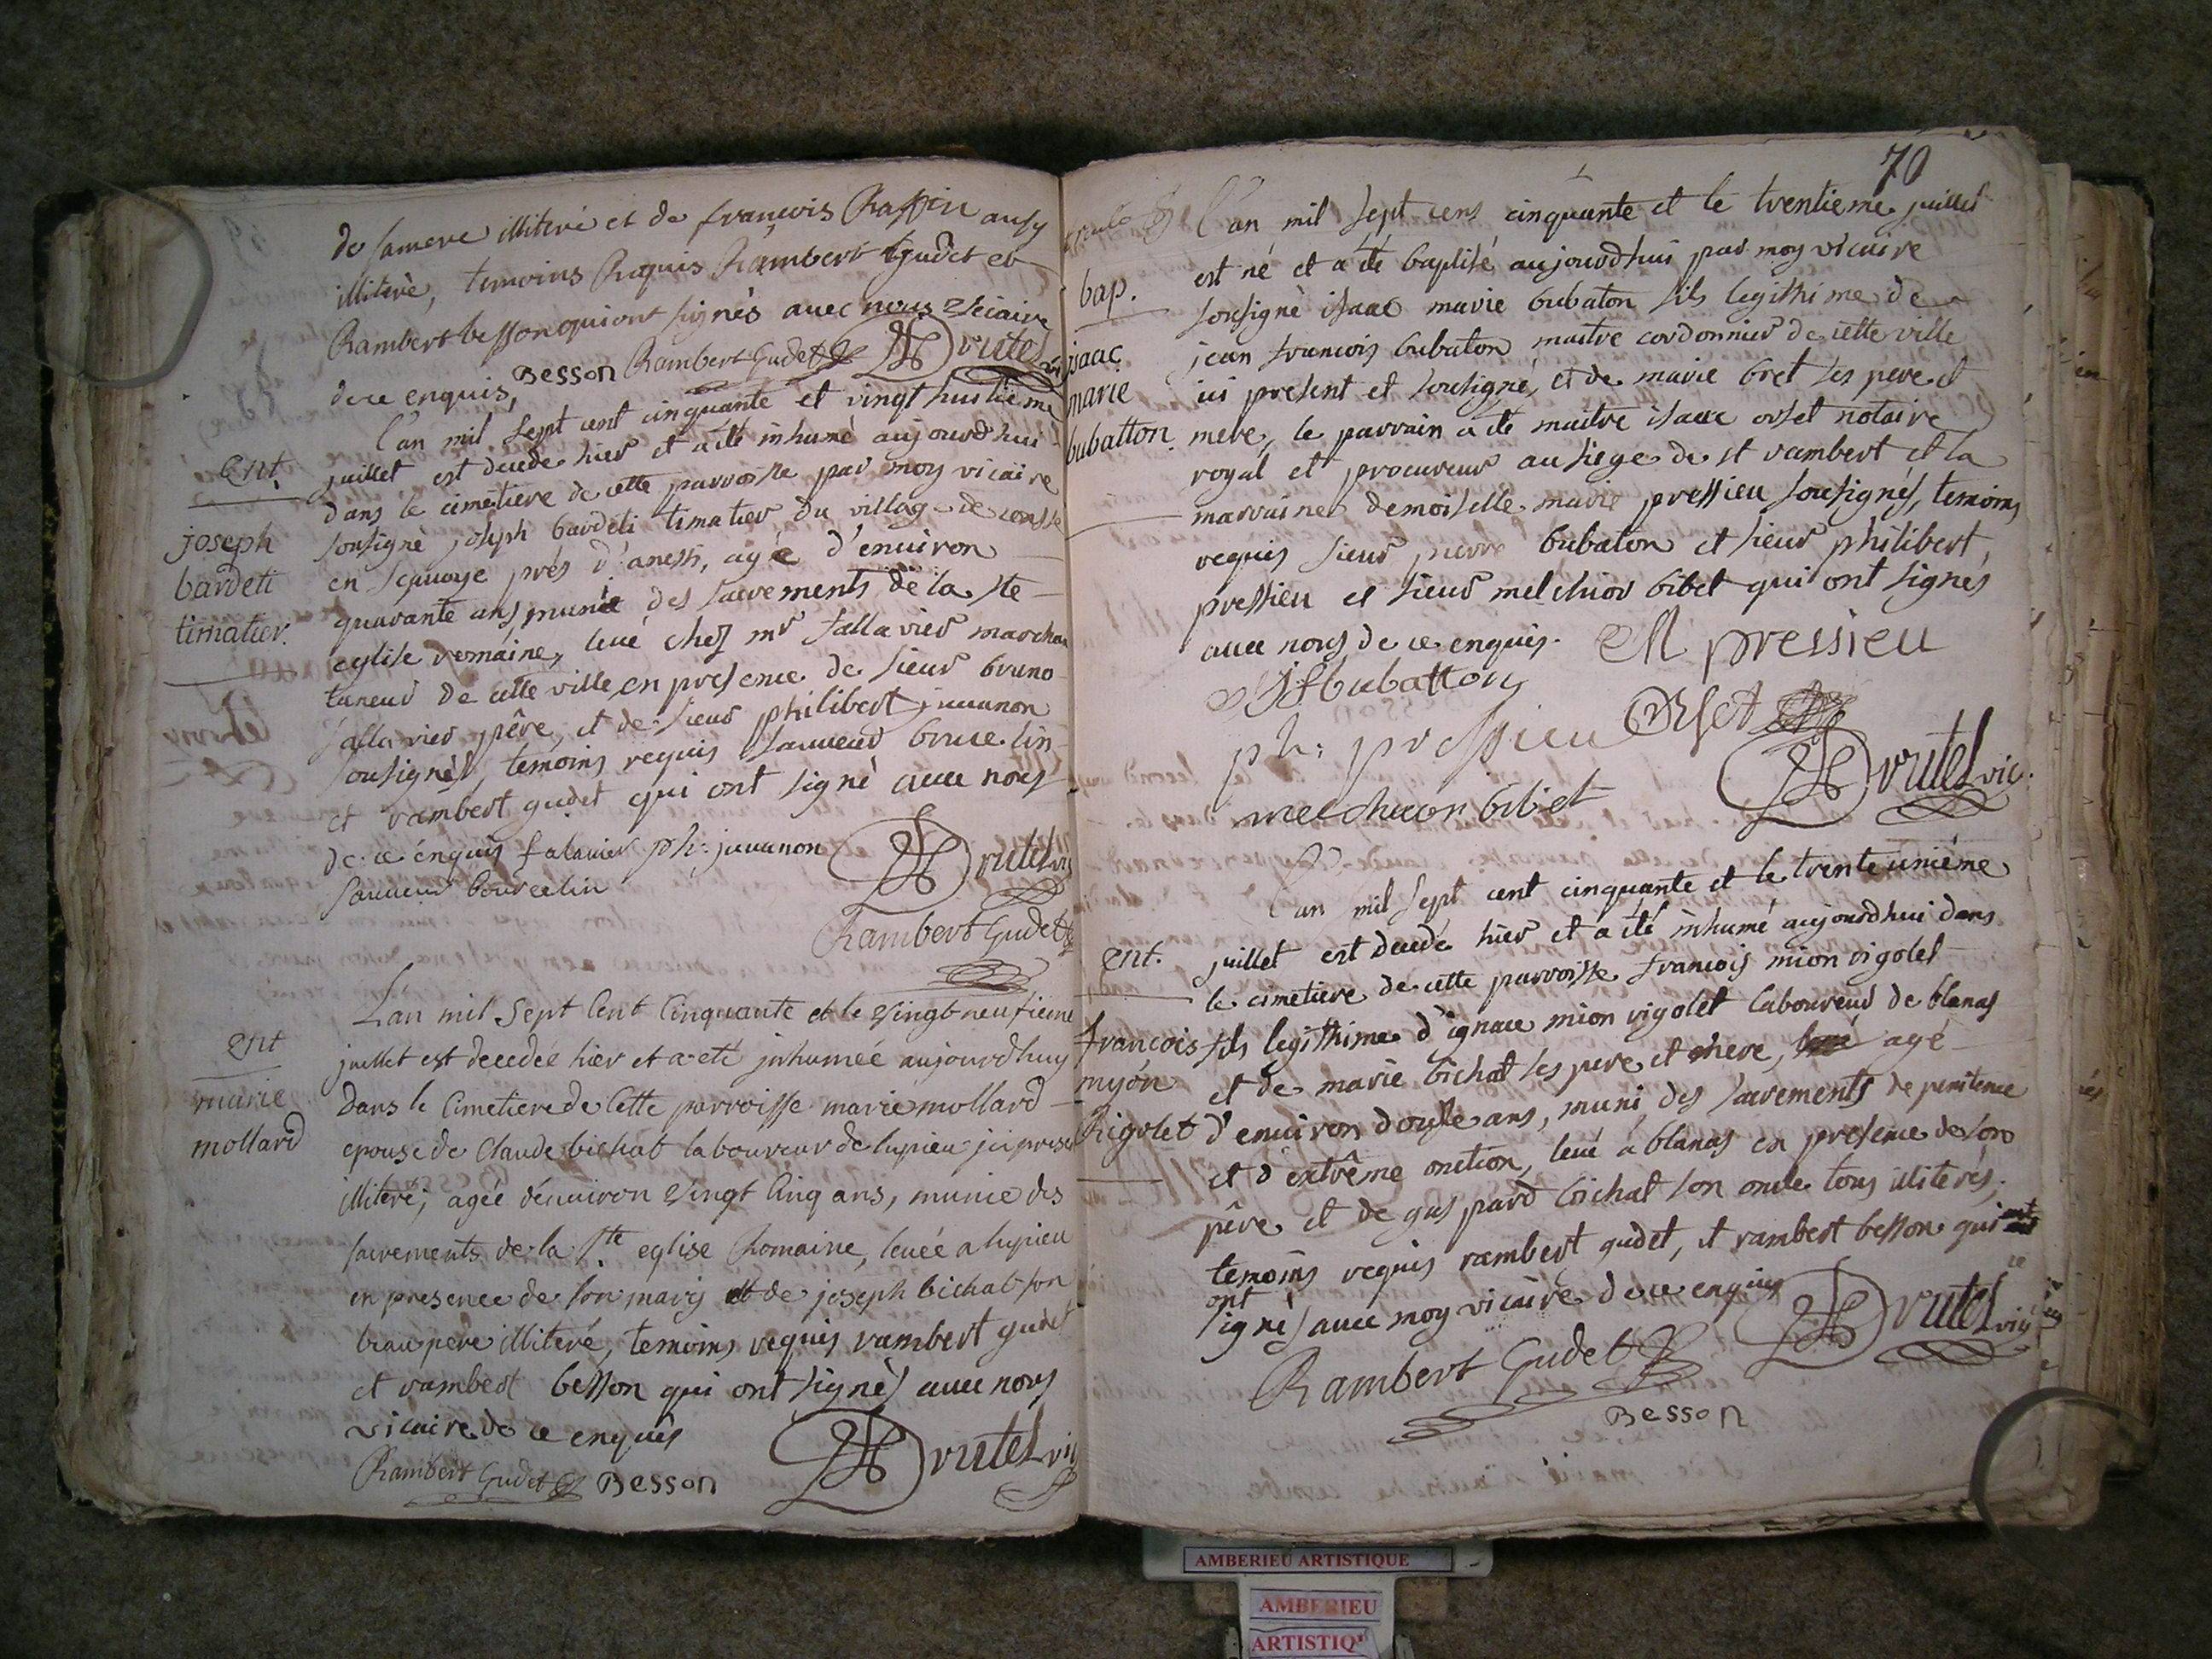 de sa mere illiteré et de françois Raffin aussy
illiteré, temoins Requis Rambert Gudet et
Rambert besson qui ont signés avec nous vicaire
de ce enquis, Besson Rambert Gudet Drutel vic
Ent.
joseph
bardeti
timatier.
l'an mil sept cent cinquante et vingt huitieme
juillet est decede hier et a été inhumé aujourd'hui
dans le cimetiere de cette parroisse par moy vicaire
sousigné joseph bardeti timatier du village de
en Sçavoye prés d'anessi, agé d'environ
quarante ans munié des sacrements de la ste
eglise romaine, levé chez mr fallavier marchan
taneur de cette ville en presence de sieur bruno
fallavier pêre, et de sieur philibert juvanon
sousignés, temoins requis sauveur
et rambert gudet qui ont signé avec nous
de ce enquis falavier ph: juvanon Drutel vic
sauveur bourcelin
Rambert Gudet
ent
marie
mollard
L'an mil Sept Cent Cinquante et le vingt neufieme
juillet est decedée hier et a eté jnhumée aujourdhuy
dans le Cimetiere de Cette parroisse marie mollard
epouse de Claude bichat laboureur de lupieu jci presen
illiteré, agée d'environ vingt Cinq ans, munie des
sacrements de la Ste eglise Romaine, levée a lupieu
en presence de son mary et de joseph bichat son
beau pere illiteré, temoins requis rambert gudet
et rambert besson qui ont signés avec nous
vicaire de ce enquis
Rambert Gudet Besson Drutel vic
70
bap.
isaac
marie
bubatton.
l'an mil sept cens cinquante et le trentieme juillet
est né et a été baptisé aujourd'hui par moy vicaire
sousigné isaac marie bubaton fils legithime de
jean francois bubaton maitre cordonnier de cette ville
ici present et sousigné, et de marie bret ses pere et
mere, le parrain a été maitre isaac orset notaire
royal et procureur au siege de st rambert et la
marraine demoiselle marie pressieu sousignés, temoins
requis sieur pierre bubaton et sieur philibert,
pressieu et sieur melchior bibet qui ont signés
avec nous de ce enquis. M pressieu
JF bubatton
ph: pressieu Orset
melchior bibet Drutel vic.
ent.
francois
myon
Rigolet
L'an mil sept cent cinquante et le trente unième
juillet est decedé hier et a été inhumé aujourdhui dans
le cimetiere de cette parroisse francois mion rigolet
fils legithime d'ignace mion rigolet laboureur de blanas
et de marie bichat ses pere et mere, agé
d'environ douse ans, muni des sacrements de penitence
et d'extrême onction, levé a blanas en presence de son
pêre et de gaspard bichat son oncle tous illiterés,
temoins requis rambert gudet, et rambert besson qui
ont
signés avec moy vicaire de ce enquis
Drutel vic
Rambert Gudet
Besson
AMBERIEU ARTISTIQUE
AMBERIEU
ARTISTIQ